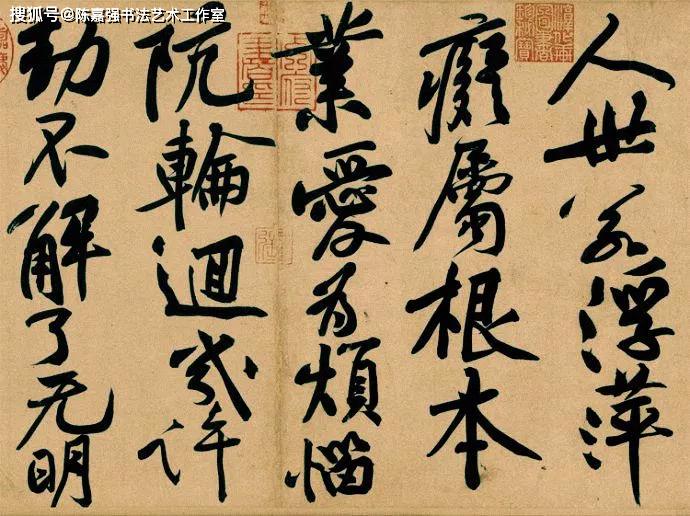 搜狐号@陈嘉强书法艺术工作室
人世若浮萍
癡屬根本
業愛為煩惱
阬輪迴幾許
劫不解了无明